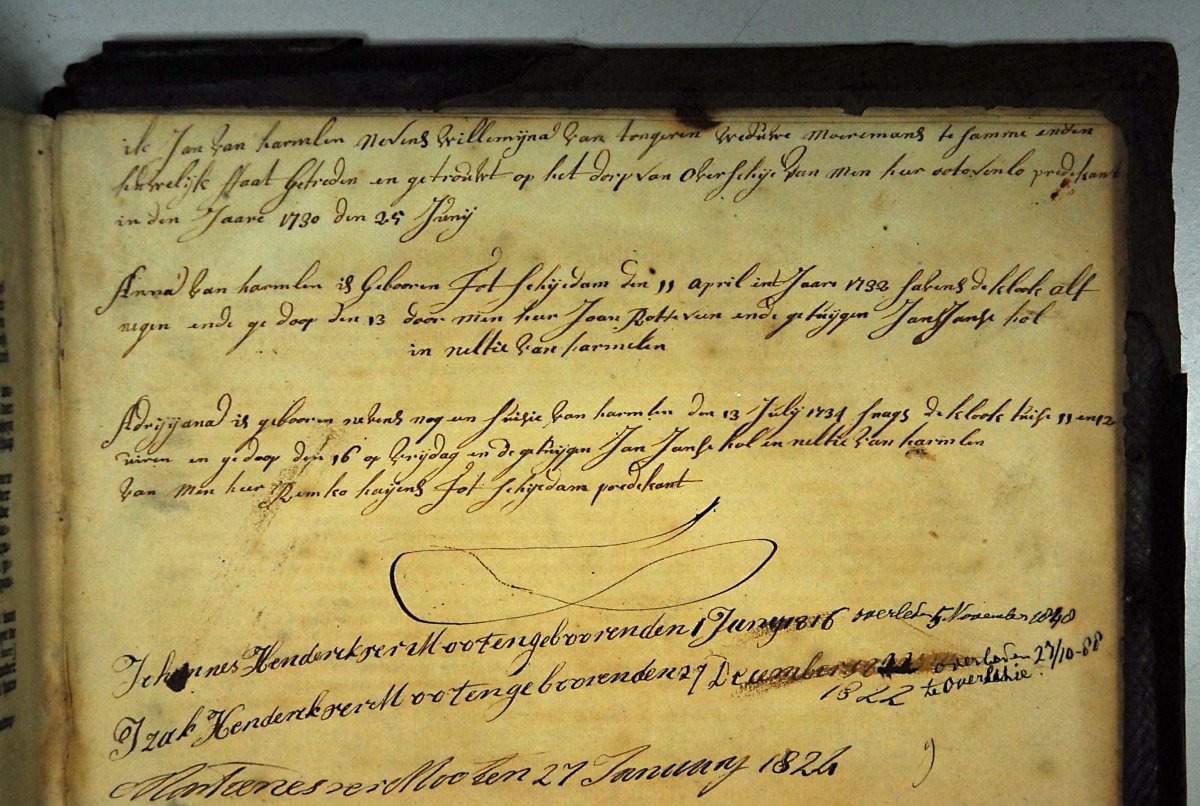 ik Jan van harmlen nevens willemijna van tongeren weduwe moeremans te samme in den
huwelijk staat getreden en getrouwt op het dorp van Overschije van men heer predekant
in den Jaare 1730 den 25 Junij
Anna van harmlen is gebooren tot schijedam den 11 april int Jaare 1733 savens de klook alf
negen ende gedoop den 13 door men heer Joan Rotteveen ende getuijgen Jan Janse hol
in neltie van harmelen
Adrijyana is gebooren nevens nog een van harmlen den 13 July 1734 snags de klook tuise 11 en 12
uiren en gedoop den 16 op vrijdag en de getuijgen Jan Janse hol en neltie van harmlen
van men heer Remko haijens tot schijedam predekant
Johannes Henderek ver Mooten geboorenden 1 Juny 1816 overleden 5 November 1848
Izak Henderek ver Mooten geboorenden 27 December overleden 27/10-88
1822 te Overschie.
Martienes ver Mooten 27 January 1824